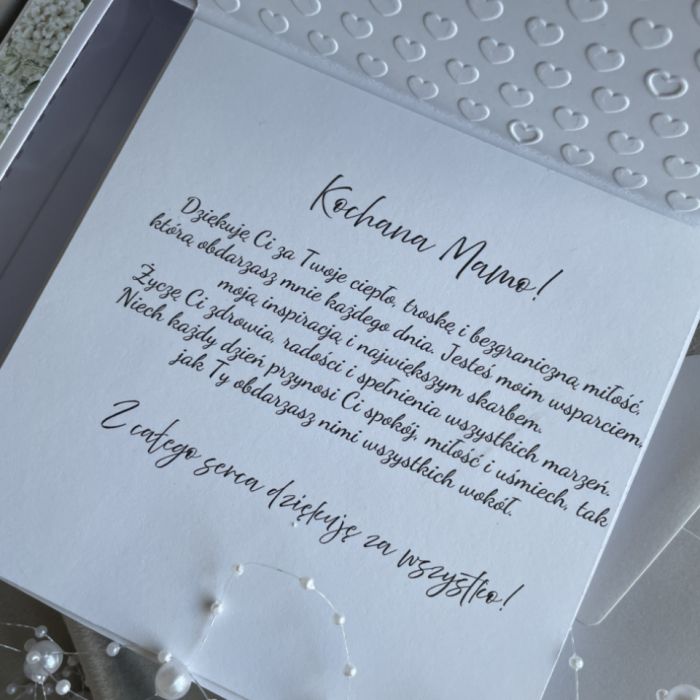 Kochana Mamo!
Dziękuję Ci za Twoje ciepło, troskę i bezgraniczną miłość,
którą obdarzasz mnie każdego dnia. Jesteś moim wsparciem,
moją inspiracją i największym skarbem.
Życzę Ci zdrowia, radości i spełnienia wszystkich marzeń.
Niech każdy dzień przynosi Ci spokój, miłość i uśmiech, tak
jak Ty obdarzasz nimi wszystkich wokół.
Z całego serca dziękuję za wszystko!